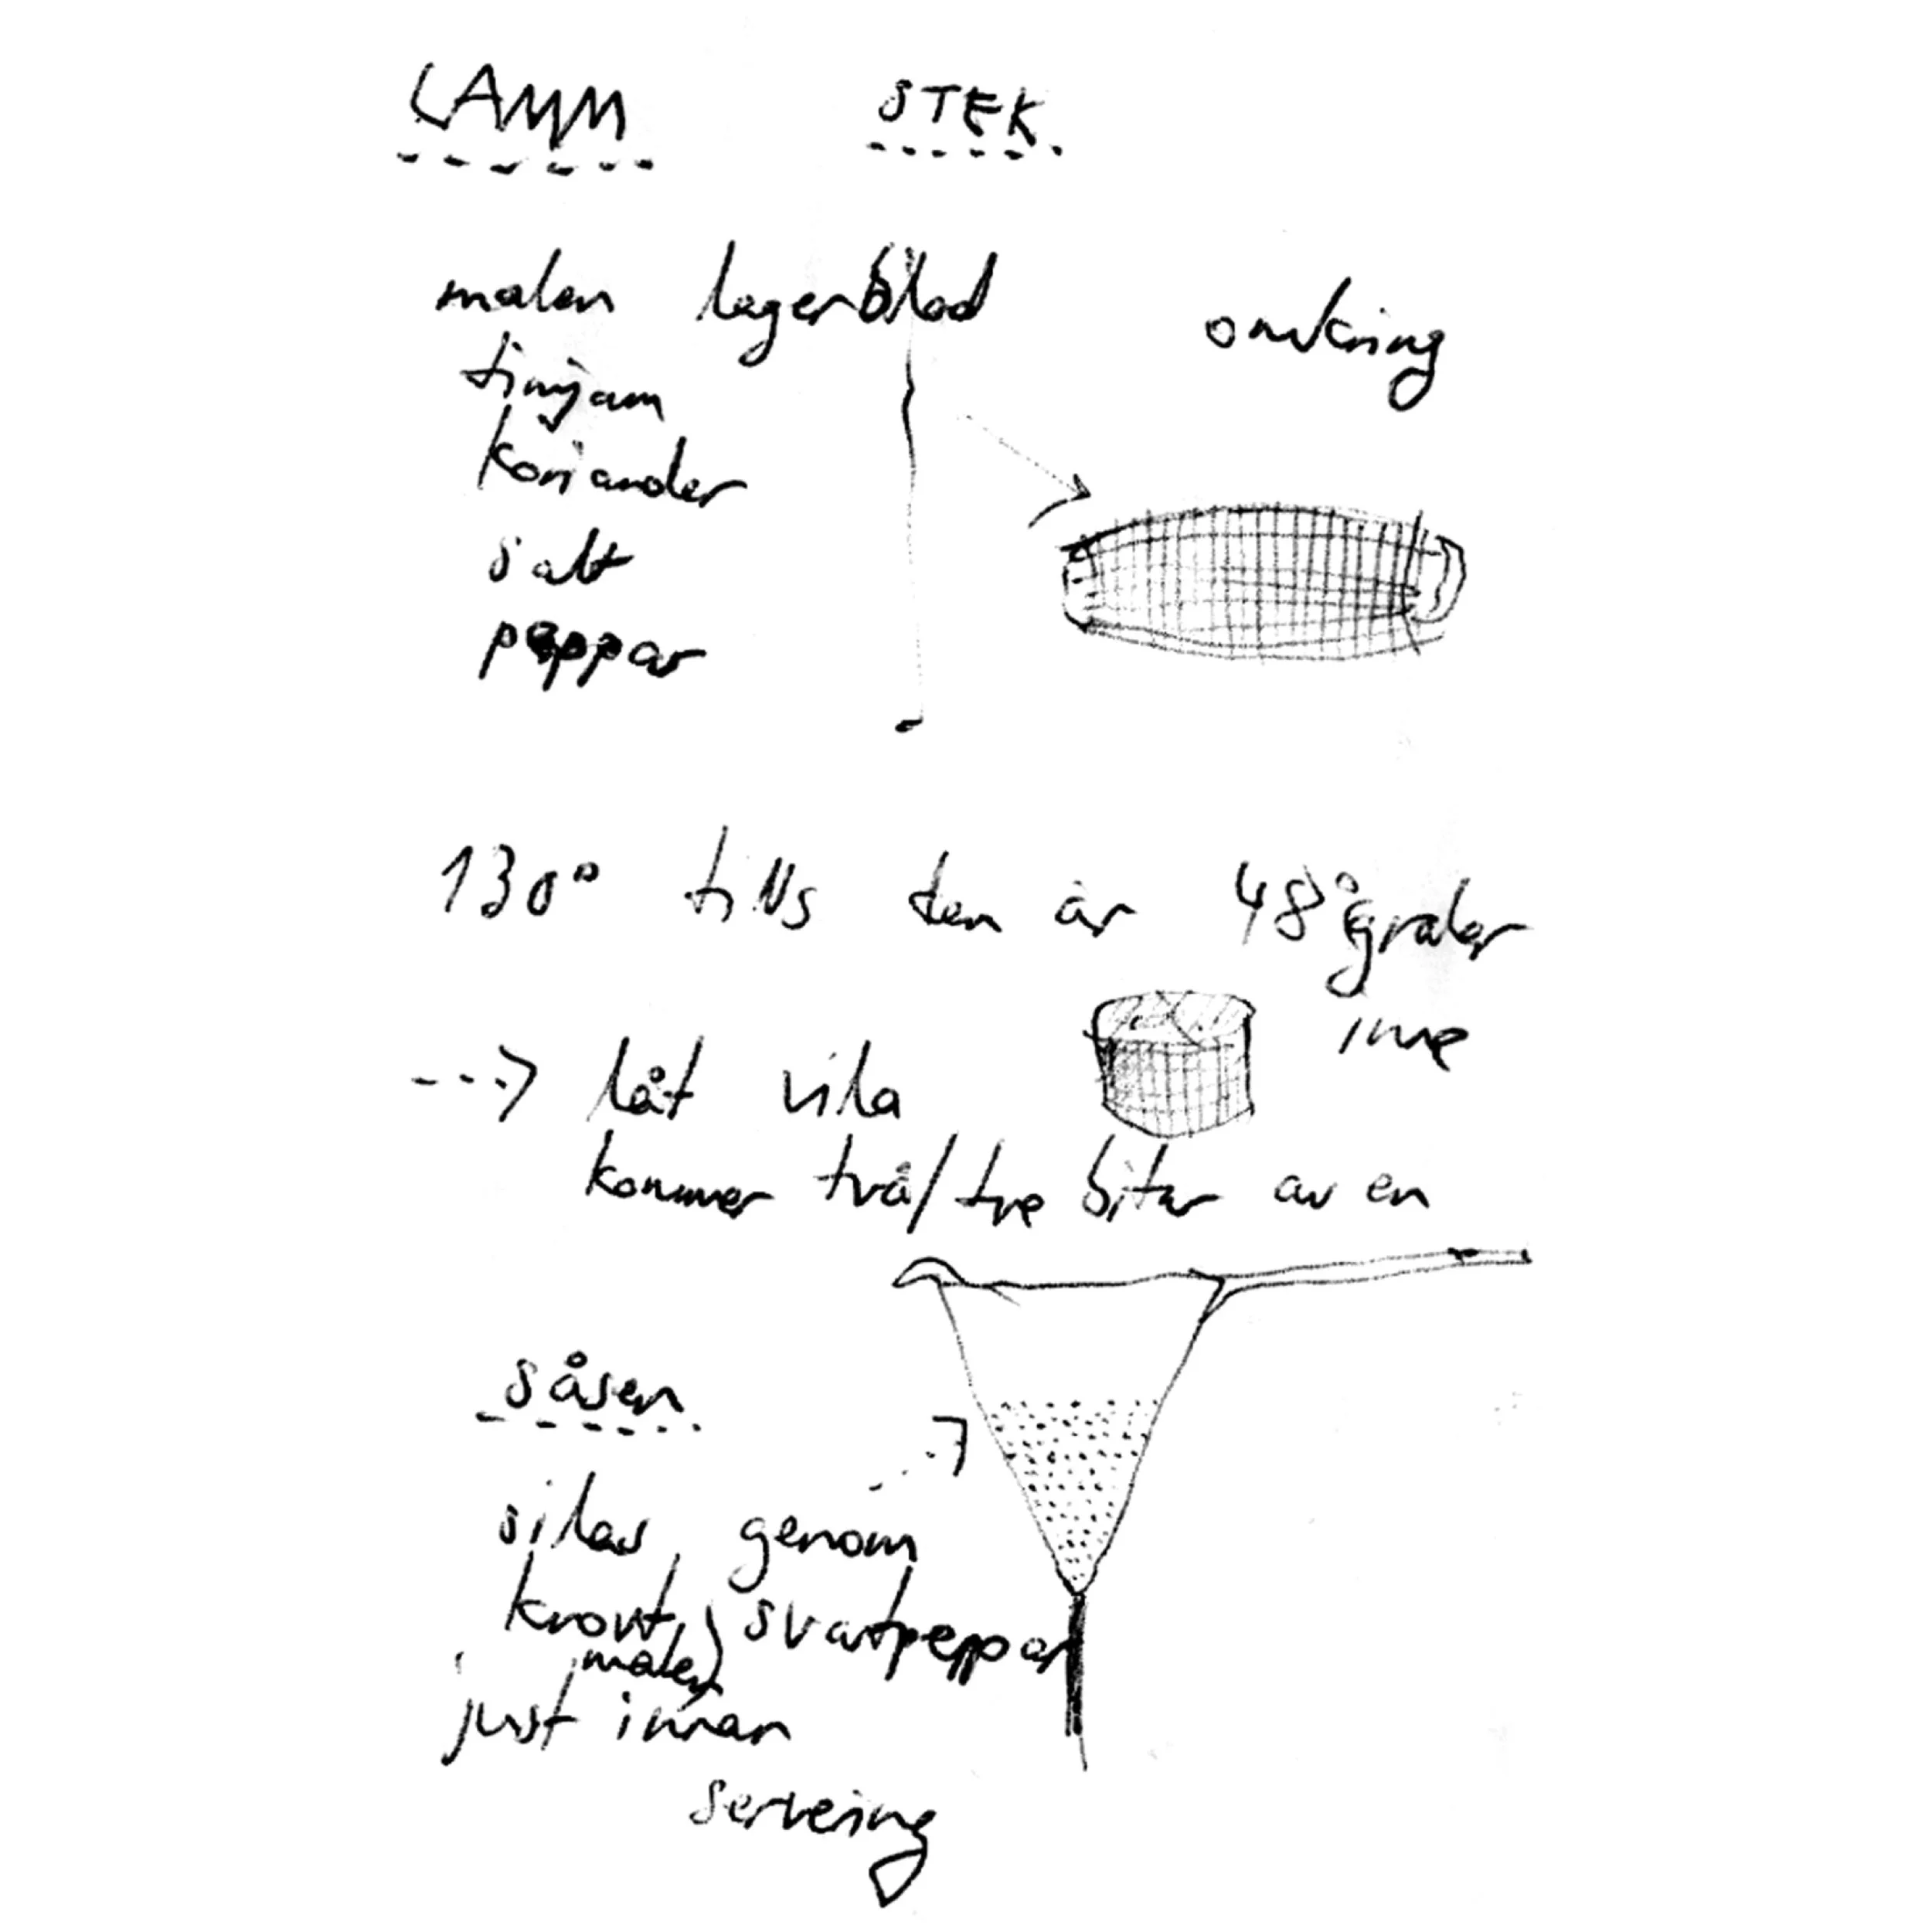 LAMM STEK
malen lagerblad
omkring
timjam
koriander
salt
peppar
130° tills den är 48° grader
inne
---> låt vila
kommer två/tre bitar av en
såsen
silas genom
krovt svatpeppar
malen
just innan
servering